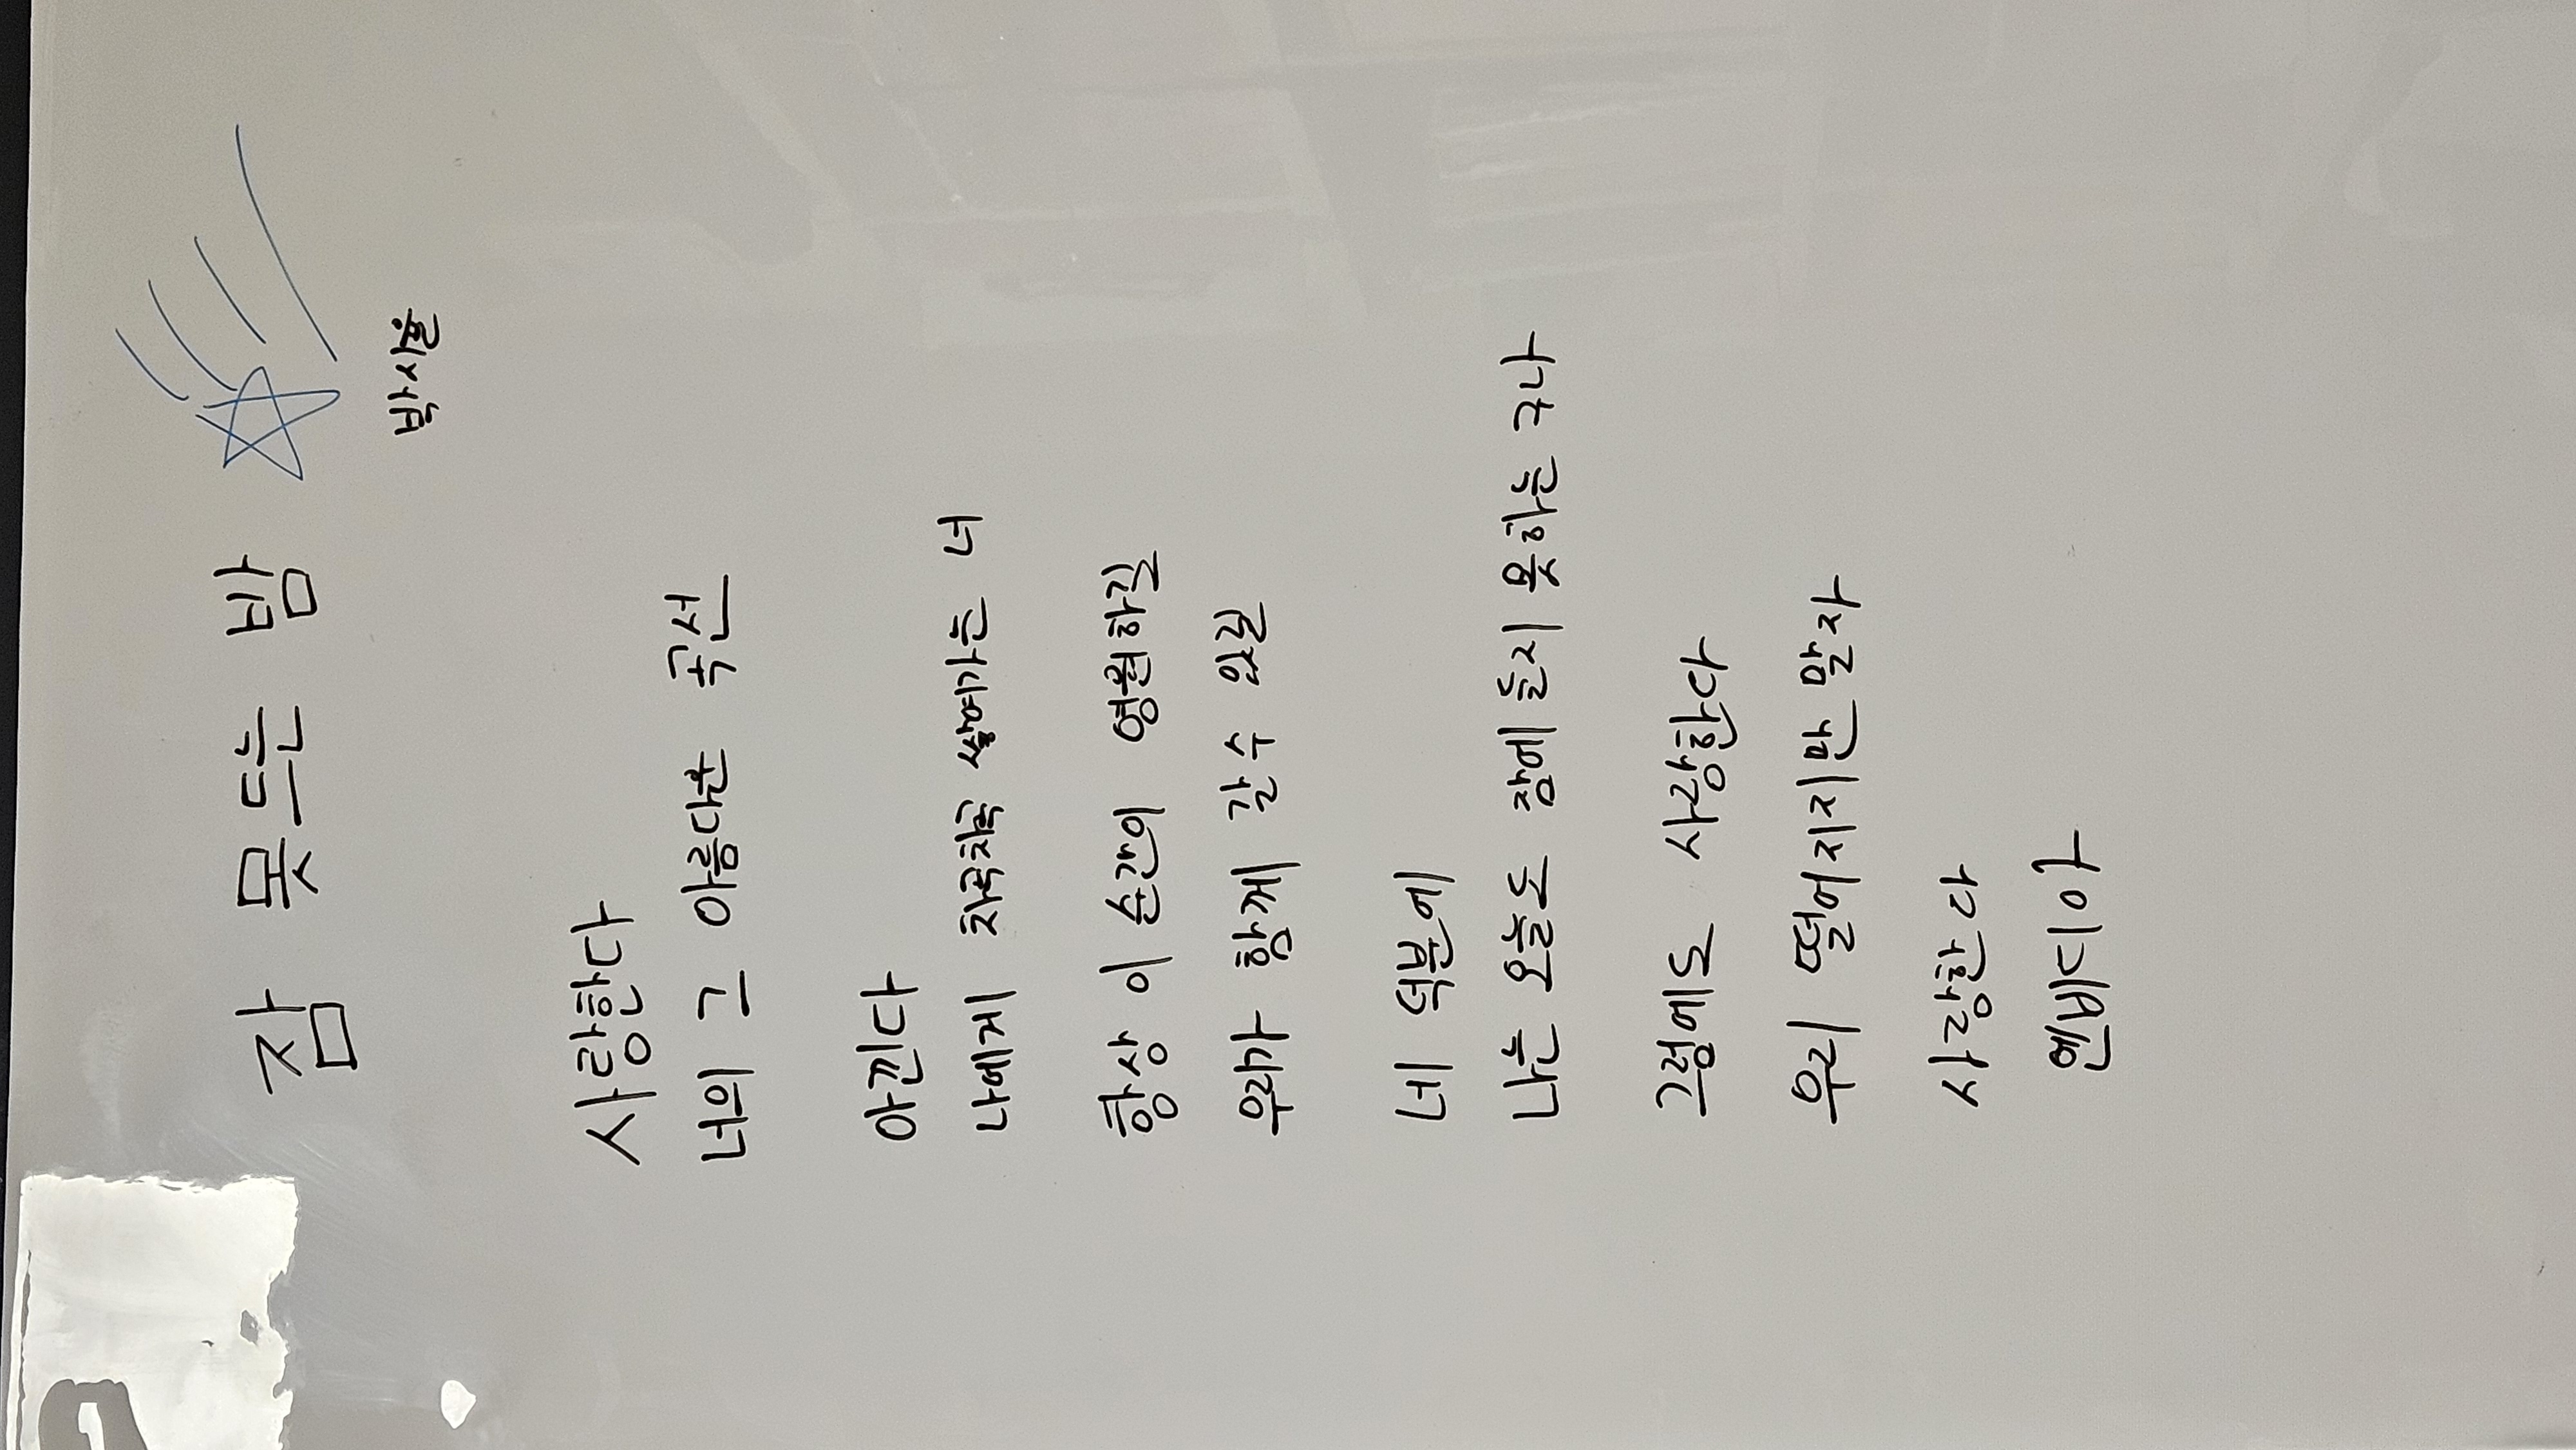 잠 못드는 밤
박시훈
사랑한다
너의 그 아름다운 곡선
아낀다
나에게 차곡차곡 쌓여가는 너
항상 이 순간이 영원하길
우리가 함께 갈 수 있길
네 덕분에
나는 오늘도 잠에 들지 못하는 구나
그럼에도 사랑한다
우리 떨어지지만 말자
사랑한다
엔비디아